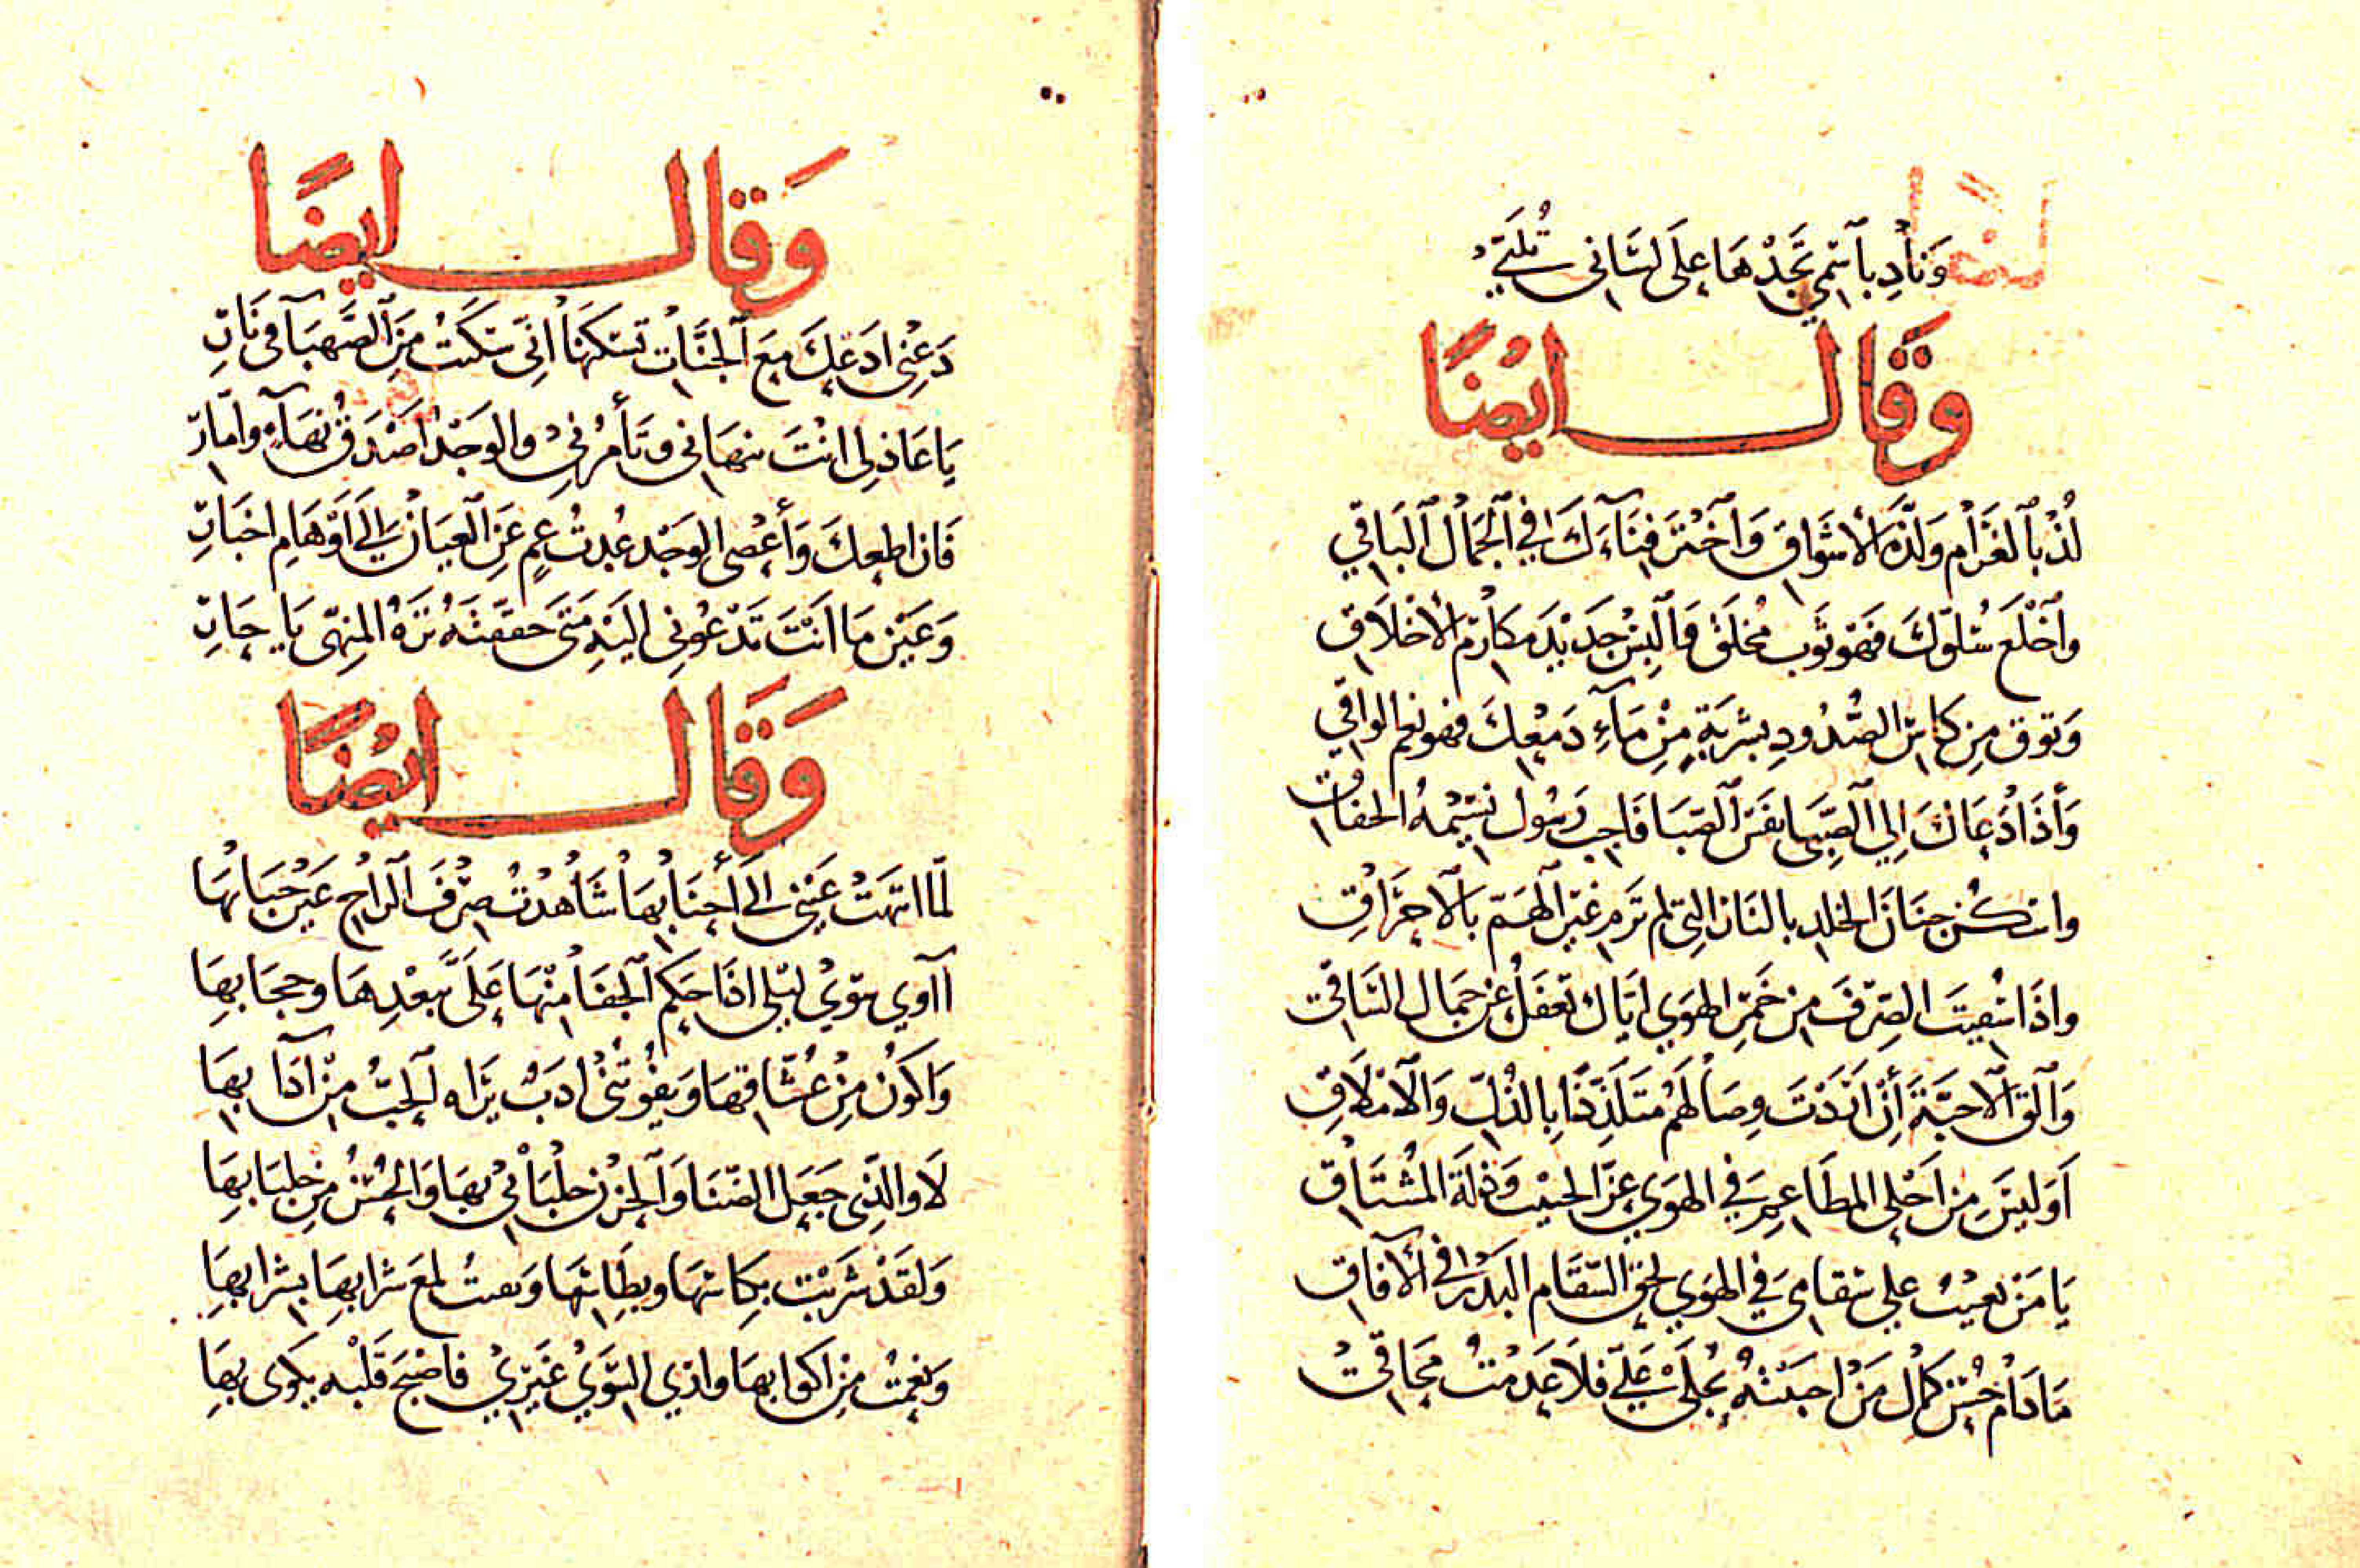 وَنَادِ بِاسْمِي تَجِدْهَا عَلَى لِسَانِي تُلَبِّي
وَقَالَ ايْضًا
لُذْ بِالغَرَامِ وَلَذَّةِ الأَشْوَاقِ وَاخْتَرْ فَنَآءَكَ فِي الْجَمَالِ الْبَاقِي
وَاخْلَعْ سُلُوَّكَ فَهْوَ ثَوْبٌ مُخْلَقٌ وَالْبِسْ جَدِيْدَ مَكَارِمِ الأَخْلَاقِ
وَتوق مِن كَاسِ الصُّدُودِ بِشَرْبَةٍ مِنْ مَآءِ دَمْعِكَ فهو نعم الواقي
وَأذَا دَعَاكَ اِلَى الصِّبَى نفَسُ الصَّبَا فَاجِب رَسُول نسِيْمهُ الخفاق
واسكُن جنَانَ الخلد بالنار التى لم تَرمِ غيْر الهَمّ بالاحرَاقِ
واذَا سُقِيتَ الصِّرْفَ مِنْ خَمْرِ الهَوَي ايّاك تغفَلْ عن جمَال السَّاقِي
وَالْقَ الاحِبَّةَ أِنْ اَرَدْتَ وِصَالَهُمْ مُتَلَذِّذًا بِالذُّلِّ وَالامْلَاقِ
اَوَليْسَ مِن اَحْلى المطَاعِمِ فِي الهَوَي عِزّ الحبيْب وَذِلَّةَ المُشْتَاقِ
يَا مَن يَعيْبُ علي سَقامى فِي الهَوَي لحِقَ السّقَام البَدْرَ في الآفاق
مَا دَامْ حُسْن كَمَال مَنْ احبَبْتُهُ يُجْلَي عَلَيَّ فلَا عَدمْتُ مُحَاقي
وَقَالَ ايضًا
دَعْنِى ادَعكَ مَعَ الجنَّات تسْكنهَا انّى سَكَنْتُ مِنَ الصَّهبَآ فى نَارِ
يَا عَاذلِى انْتَ تنهَانى وَتَأمُرُنى والوَجْدُ اصْدَقُ نهَّآءٍ وامَّارِ
فَان اطِعكَ وَأعْصِى الوَجْدَ عُدتُ عمٍ عَنِ العيَانِ اِلَى اَوْهَامِ اخبَارِ
وَعَيْن مَا اَنْتَ تَدْعُوْنِى الَيْهِ مَتَى حَققْتَهُ تَرَهُ المنهّى يَا جَارِ
وَقَالَ ايْضًا
لمّا انتهَتْ عَيْنِى الى أحبَابِهَا شَاهَدْتُ صِرْفَ الرَّاحِ عَيْنَ حُبَابهَا
اآوي سِوَيْ لَيْلى اذَا حَكَم الجفَا مِنْهَا عَلَى بَعْدِهَا وحجَابِهَا
وَاكُونُ مِنْ عُشَّاقهَا وَيَفُوْتُنى ادَبٌ يَرَاه الحُبُّ مِنْ آدَابِهَا
لَا والذِى جَعَل الضَنَا وَالحزْن جلْبَابي بهَا وَالحُسْنُ مِن جلبَابِهَا
وَلقَدْ شَرِبْت بكَاسهَا وبطَاسهَا وَبعتُ لمعَ سَرَابهَا بشَرابهَا
وَنعِمْتُ مِن اكوَابهَا واذى السِّوَيْ غَيْرِيْ فَاضْحَ قَلْبه يكوى بهَا